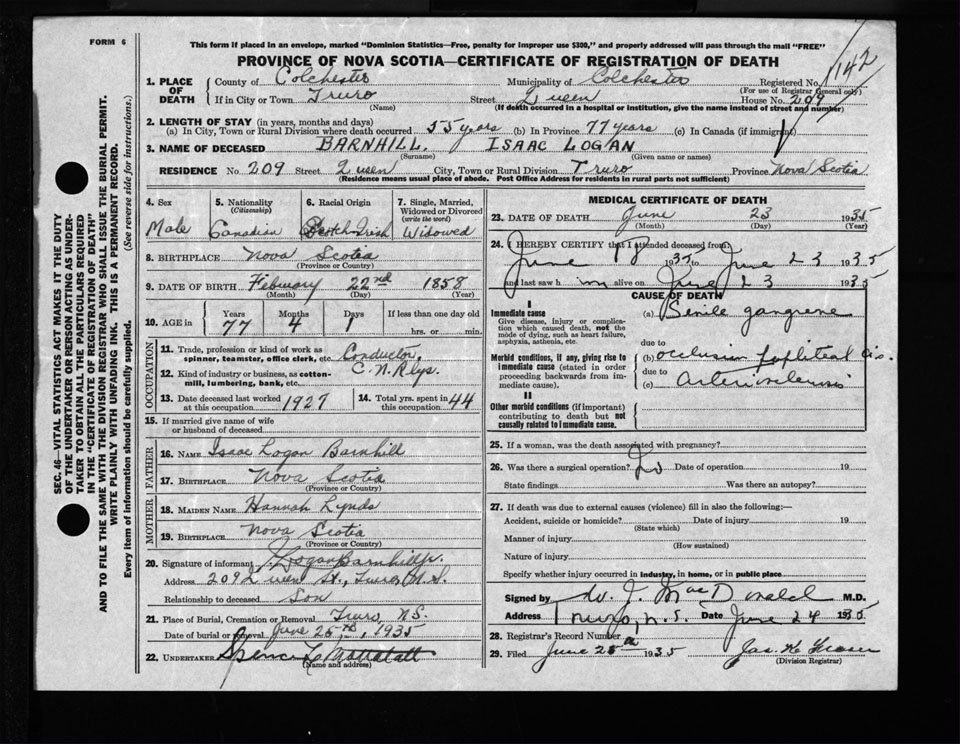 FORM 6
This form if placed in an envelope, marked "Dominion Statistics—Free, penalty for improper use $300," and properly addressed will pass through the mail "FREE"
PROVINCE OF NOVA SCOTIA—CERTIFICATE OF REGISTRATION OF DEATH
142
1. PLACE OF DEATH County of Colchester Municipality of Colchester Registered No.
(For use of Registrar General only)
If in City or Town Truro Street Queen House No. 209
(Name) (If death occurred in a hospital or institution, give the name instead of street and number)
2. LENGTH OF STAY (in years, months and days)
(a) In City, Town or Rural Division where death occurred 55 years (b) In Province 77 years (c) In Canada (if immigrant)
3. NAME OF DECEASED BARNHILL. ISAAC LOGAN
(Surname) (Given name or names)
RESIDENCE No. 209 Street Queen City, Town or Rural Division Truro Province Nova Scotia
(Residence means usual place of abode. Post Office Address for residents in rural parts not sufficient)
SEC. 46—VITAL STATISTICS ACT MAKES IT THE DUTY
OF THE UNDERTAKER OR PERSON ACTING AS UNDER-
TAKER TO OBTAIN ALL THE PARTICULARS REQUIRED
IN THE "CERTIFICATE OF REGISTRATION OF DEATH"
AND TO FILE THE SAME WITH THE DIVISION REGISTRAR WHO SHALL ISSUE THE BURIAL PERMIT.
WRITE PLAINLY WITH UNFADING INK. THIS IS A PERMANENT RECORD.
Every item of information should be carefully supplied. (See reverse side for instructions.)
4. Sex 5. Nationality (Citizenship) 6. Racial Origin 7. Single, Married, Widowed or Divorced (write the word)
Male Canadian Scotch Irish Widowed
8. BIRTHPLACE Nova Scotia
(Province or Country)
9. DATE OF BIRTH February 22nd 1858
(Month) (Day) (Year)
10. AGE in Years Months Days If less than one day old
77 4 1 hrs. or min.
OCCUPATION
11. Trade, profession or kind of work as spinner, teamster, office clerk, etc. Conductor,
12. Kind of industry or business, as cotton-mill, lumbering, bank, etc. C.N. Rlys.
13. Date deceased last worked at this occupation 1927 14. Total yrs. spent in this occupation 44
15. If married give name of wife or husband of deceased
FATHER
16. Name Isaac Logan Barnhill
17. Birthplace Nova Scotia
(Province or Country)
MOTHER
18. Maiden Name Hannah Lynds
19. Birthplace Nova Scotia
(Province or Country)
20. Signature of informant Logan Barnhill
Address 209 Queen St., Truro, N.S.
Relationship to deceased Son
21. Place of Burial, Cremation or Removal Truro, N.S.
Date of burial or removal June 25th, 1935
22. Undertaker
(Name and address)
MEDICAL CERTIFICATE OF DEATH
23. DATE OF DEATH June 23 1935
(Month) (Day) (Year)
24. I HEREBY CERTIFY that I attended deceased from
June 18 1935 to June 23 1935
and last saw him alive on June 23 1935
CAUSE OF DEATH
I
Immediate cause (a) Senile gangrene
Give disease, injury or complication which caused death, not the mode of dying, such as heart failure, asphyxia, asthenia, etc.
due to
Morbid conditions, if any, giving rise to immediate cause (stated in order proceeding backwards from immediate cause). (b) occlusion popliteal
due to
(c) Arteriosclerosis
II
Other morbid conditions (if important) contributing to death but not causally related to immediate cause.
25. If a woman, was the death associated with pregnancy?
26. Was there a surgical operation? No Date of operation 19
State findings Was there an autopsy?
27. If death was due to external causes (violence) fill in also the following:—
Accident, suicide or homicide? Date of injury 19
(State which)
Manner of injury
(How sustained)
Nature of injury
Specify whether injury occurred in industry, in home, or in public place
Signed by W. J. MacDonald M.D.
Address Truro, N.S. Date June 24 1935
28. Registrar's Record Number
29. Filed June 25th 1935 Jas. H. Fraser
(Division Registrar)